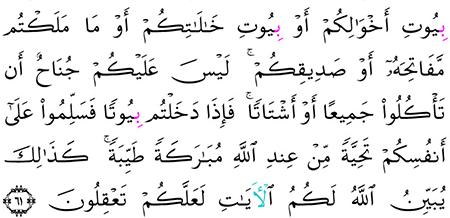 بِيُوتِ أَخْوَٰلِكُمْ أَوْ بِيُوتِ خَٰلَٰتِكُمْ أَوْ مَا مَلَكْتُم
مَّفَاتِحَهُۥٓ أَوْ صَدِيقِكُمْ ۚ لَيْسَ عَلَيْكُمْ جُنَاحٌ أَن
تَأْكُلُوا۟ جَمِيعًا أَوْ أَشْتَاتًا ۚ فَإِذَا دَخَلْتُم بِيُوتًا فَسَلِّمُوا۟ عَلَىٰٓ
أَنفُسِكُمْ تَحِيَّةً مِّنْ عِندِ ٱللَّهِ مُبَٰرَكَةً طَيِّبَةً ۚ كَذَٰلِكَ
يُبَيِّنُ ٱللَّهُ لَكُمُ ٱلْأَيَٰتِ لَعَلَّكُمْ تَعْقِلُونَ ٦١